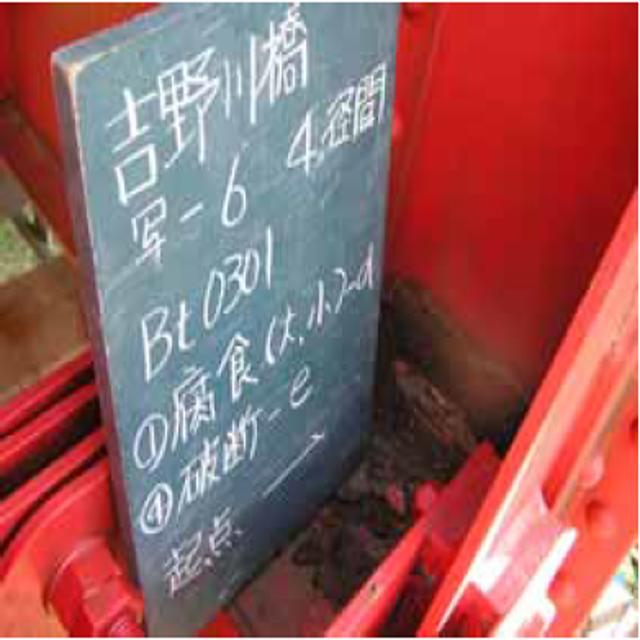 吉野川橋
写-6 4径間
Bt0301
①腐食(大,小)-d
④破断-e
起点